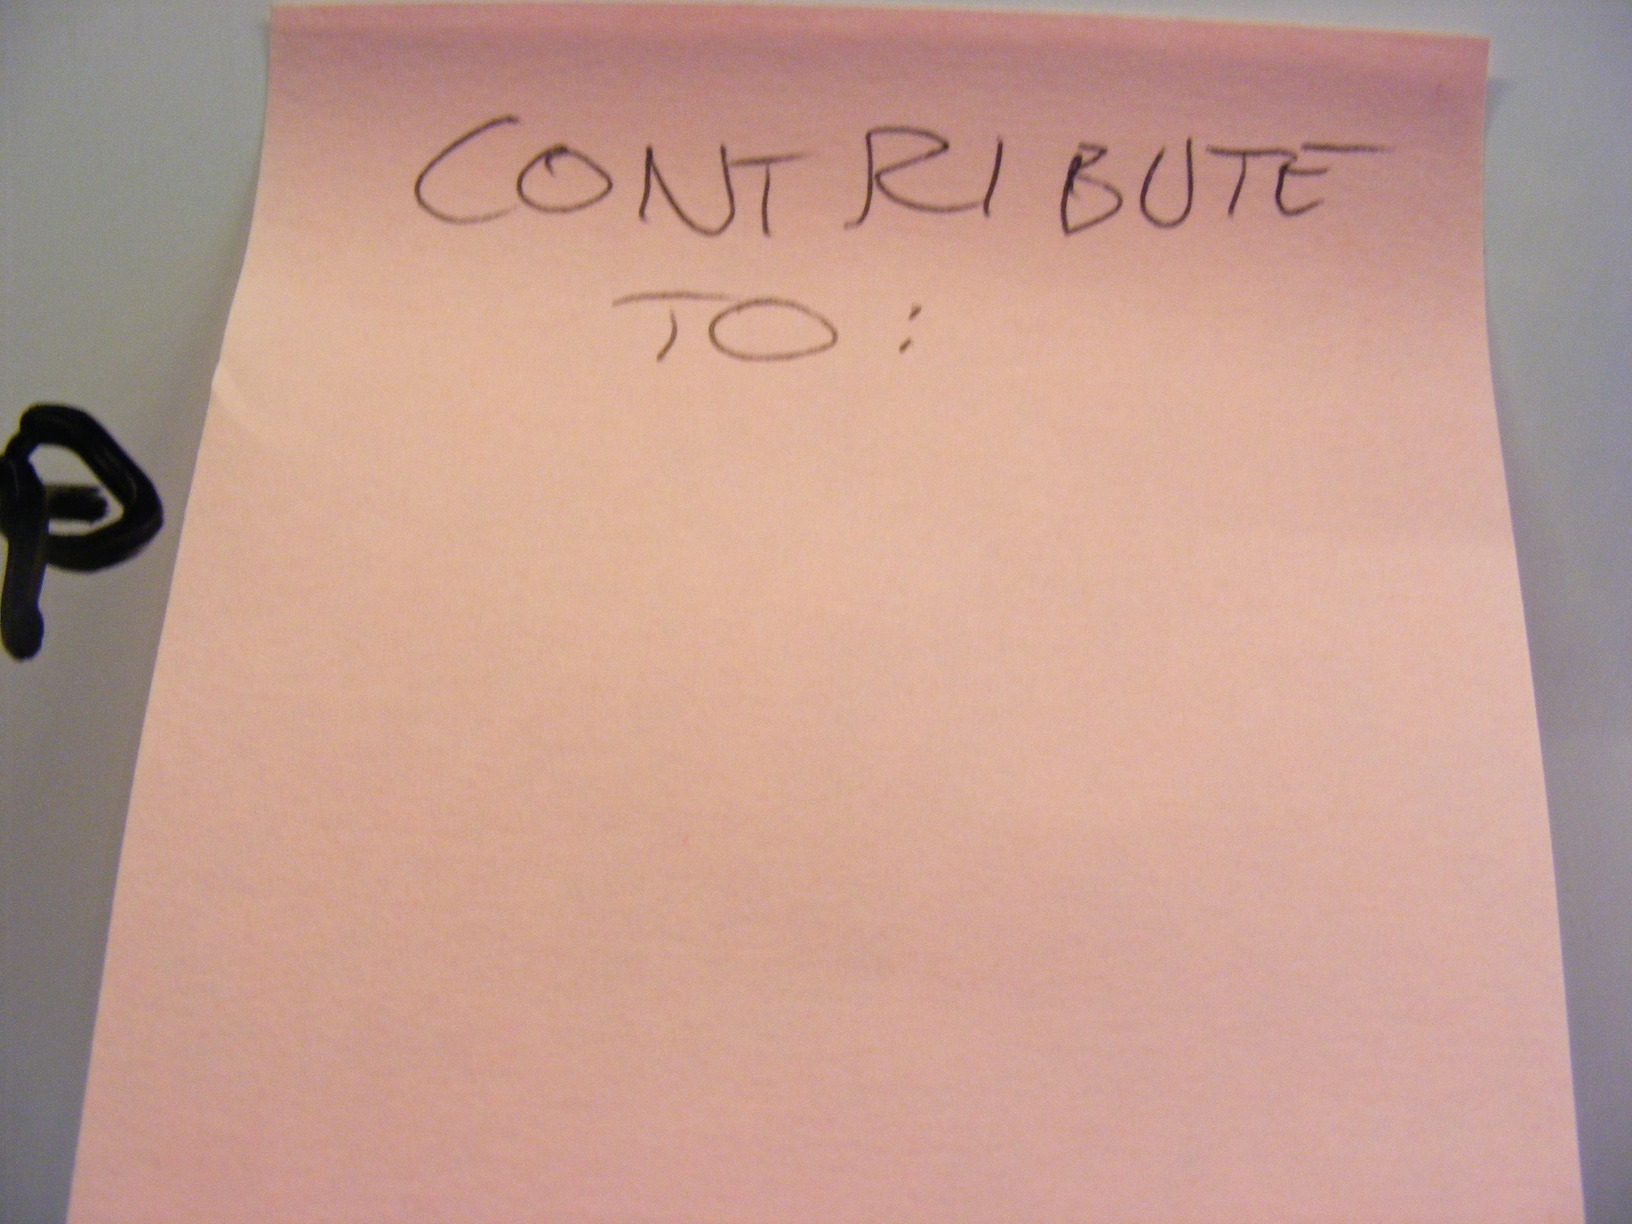 CONTRIBUTE
TO:
p